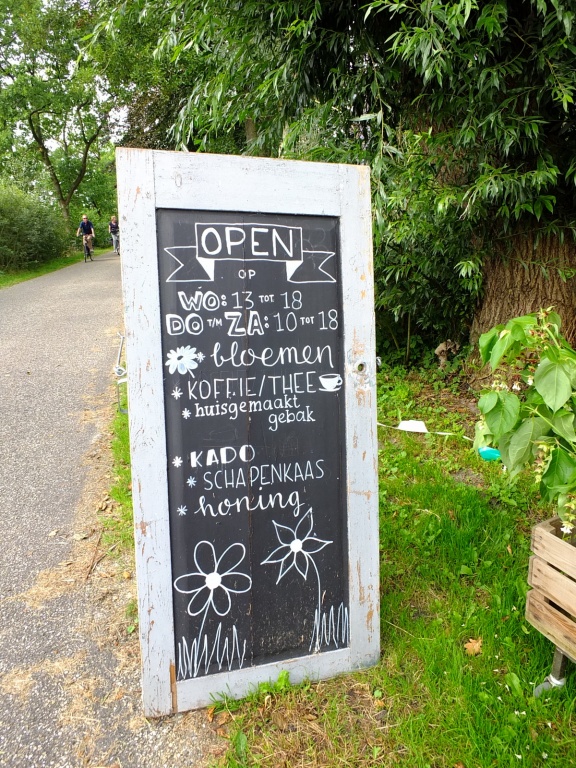 OPEN
OP
WO: 13 TOT 18
DO T/M ZA: 10 TOT 18
bloemen
* KOFFIE/THEE
* huisgemaakt
gebak
* KADO
* SCHAPENKAAS
* honing